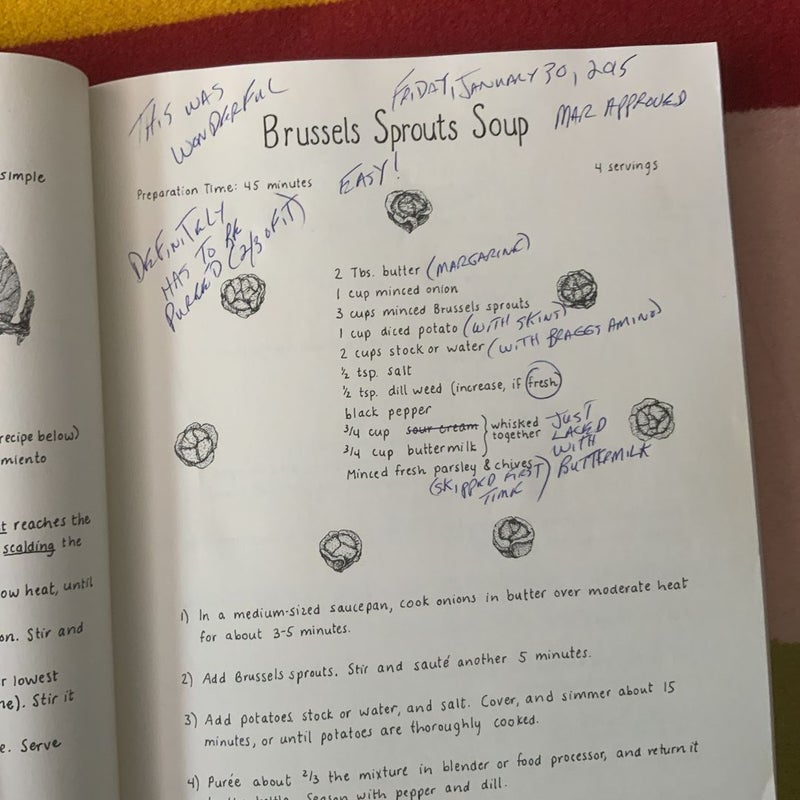 simple
recipe below)
miento
t reaches the
scalding the
ow heat, until
on. Stir and
r lowest
ne). Stir it
e. Serve
THIS WAS
WONDERFUL
FRIDAY, JANUARY 30, 2015
Brussels Sprouts Soup
MAR APPROVED
EASY!
Preparation Time: 45 minutes
4 servings
DEFINITELY
HAS TO BE
PUREÉD (2/3 OF IT)
2 Tbs. butter (MARGARINE)
1 cup minced onion
3 cups minced Brussels sprouts
1 cup diced potato (WITH SKINS)
2 cups stock or water (WITH BRAGGS AMINO)
½ tsp. salt
½ tsp. dill weed (increase, if fresh)
black pepper
3/4 cup sour cream } whisked
3/4 cup buttermilk } together
JUST
LACED
WITH
BUTTERMILK
Minced fresh parsley & chives
(SKIPPED FIRST
TIME)
1) In a medium-sized saucepan, cook onions in butter over moderate heat
for about 3-5 minutes.
2) Add Brussels sprouts. Stir and sauté another 5 minutes.
3) Add potatoes, stock or water, and salt. Cover, and simmer about 15
minutes, or until potatoes are thoroughly cooked.
4) Purée about 2/3 the mixture in blender or food processor, and return it
Season with pepper and dill.